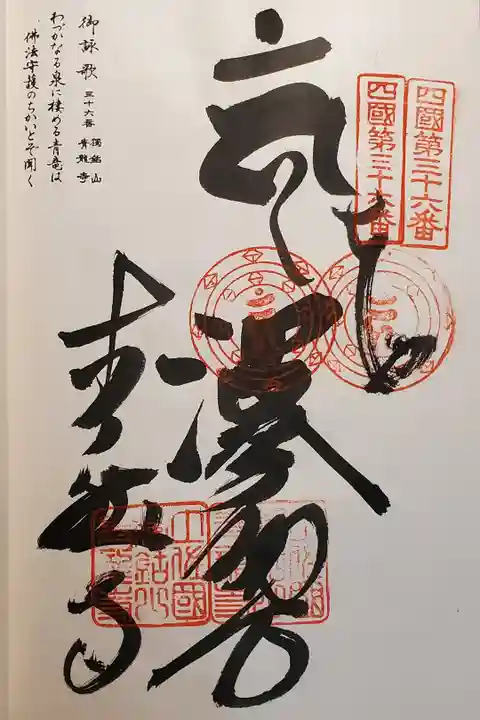 四國第三十六番
四國第三十六番
青龍寺
土佐國
獨鈷山
青龍寺
御詠歌 三十六番 獨鈷山 青龍寺
わづかなる泉に棲める青竜は
佛法守護のちかいとぞ聞く